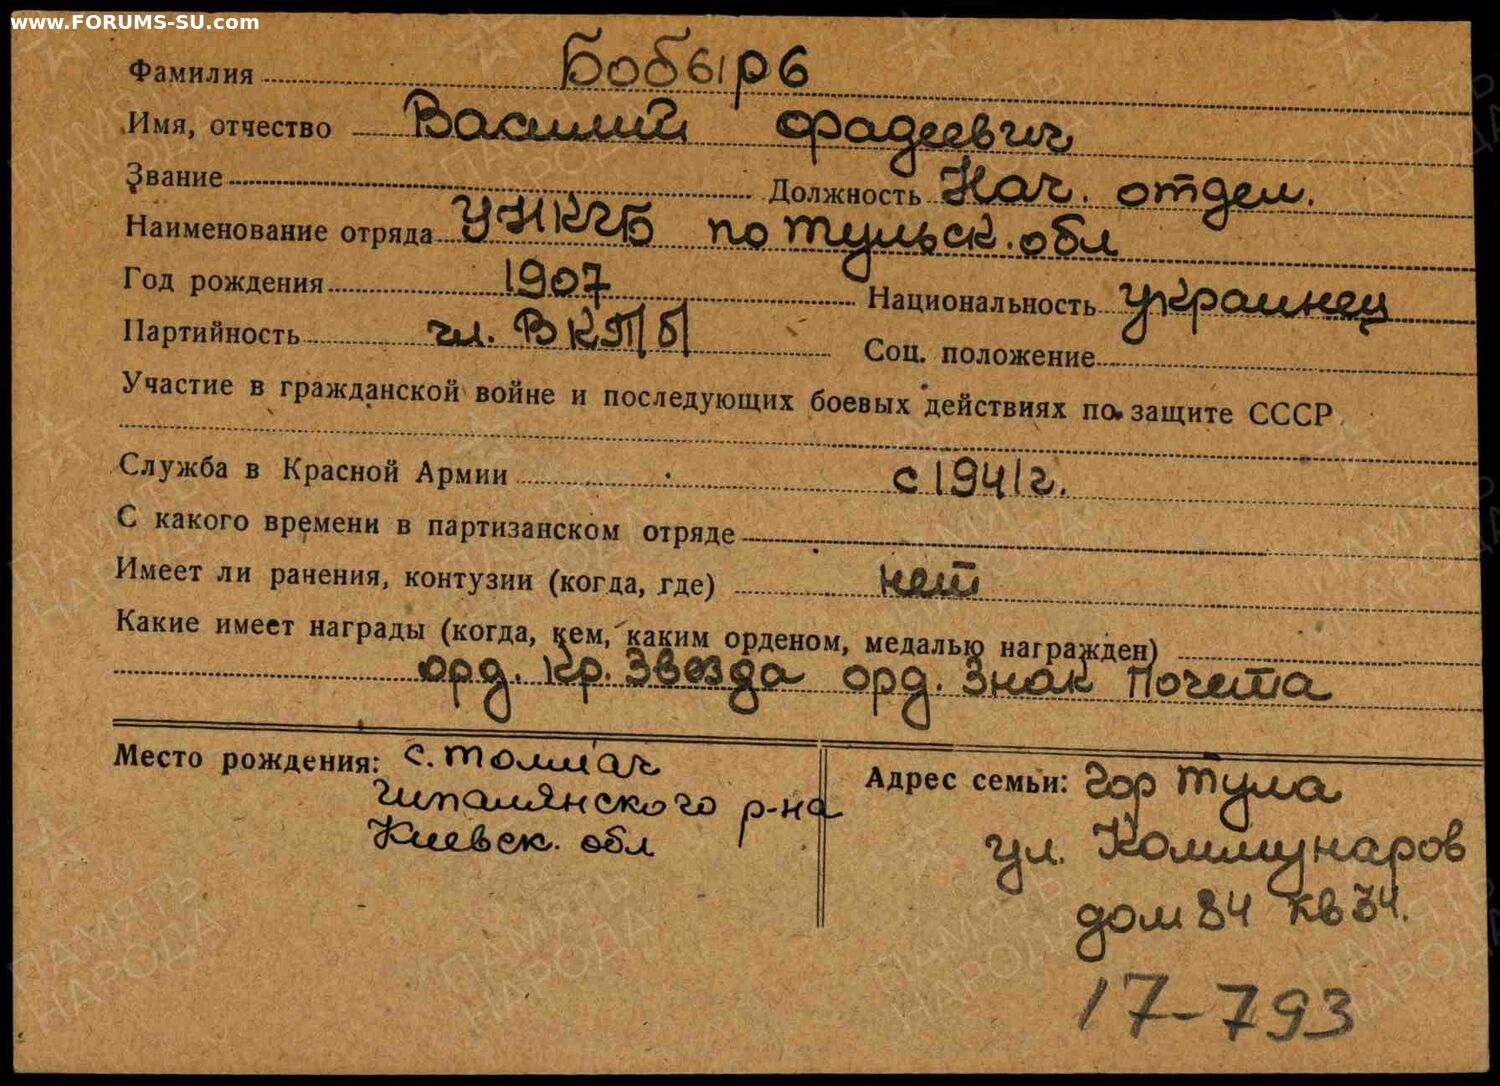 www.FORUMS-SU.com
Фамилия Бобырь
Имя, отчество Василий Фадеевич
Звание Должность Нач. отдел.
Наименование отряда УНКГБ по Тульск. обл
Год рождения 1907 Национальность украинец
Партийность чл. ВКП/б/ Соц. положение
Участие в гражданской войне и последующих боевых действиях по защите СССР
Служба в Красной Армии с 1941 г.
С какого времени в партизанском отряде
Имеет ли ранения, контузии (когда, где) нет
Какие имеет награды (когда, кем, каким орденом, медалью награжден)
орд. Кр. Звезда орд. Знак Почета
Место рождения: с. Толмач
р-на
Киевск. обл
Адрес семьи: гор Тула
ул. Коммунаров
дом 34 кв 34.
17-793
ПАМЯТЬ НАРОДА